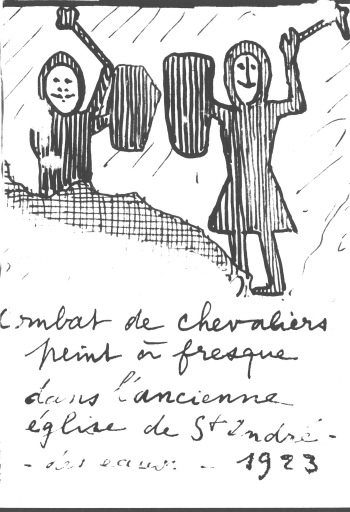 Combat de chevaliers
peint à fresque
dans l'ancienne
église de St André-
-des eaux. - 1923